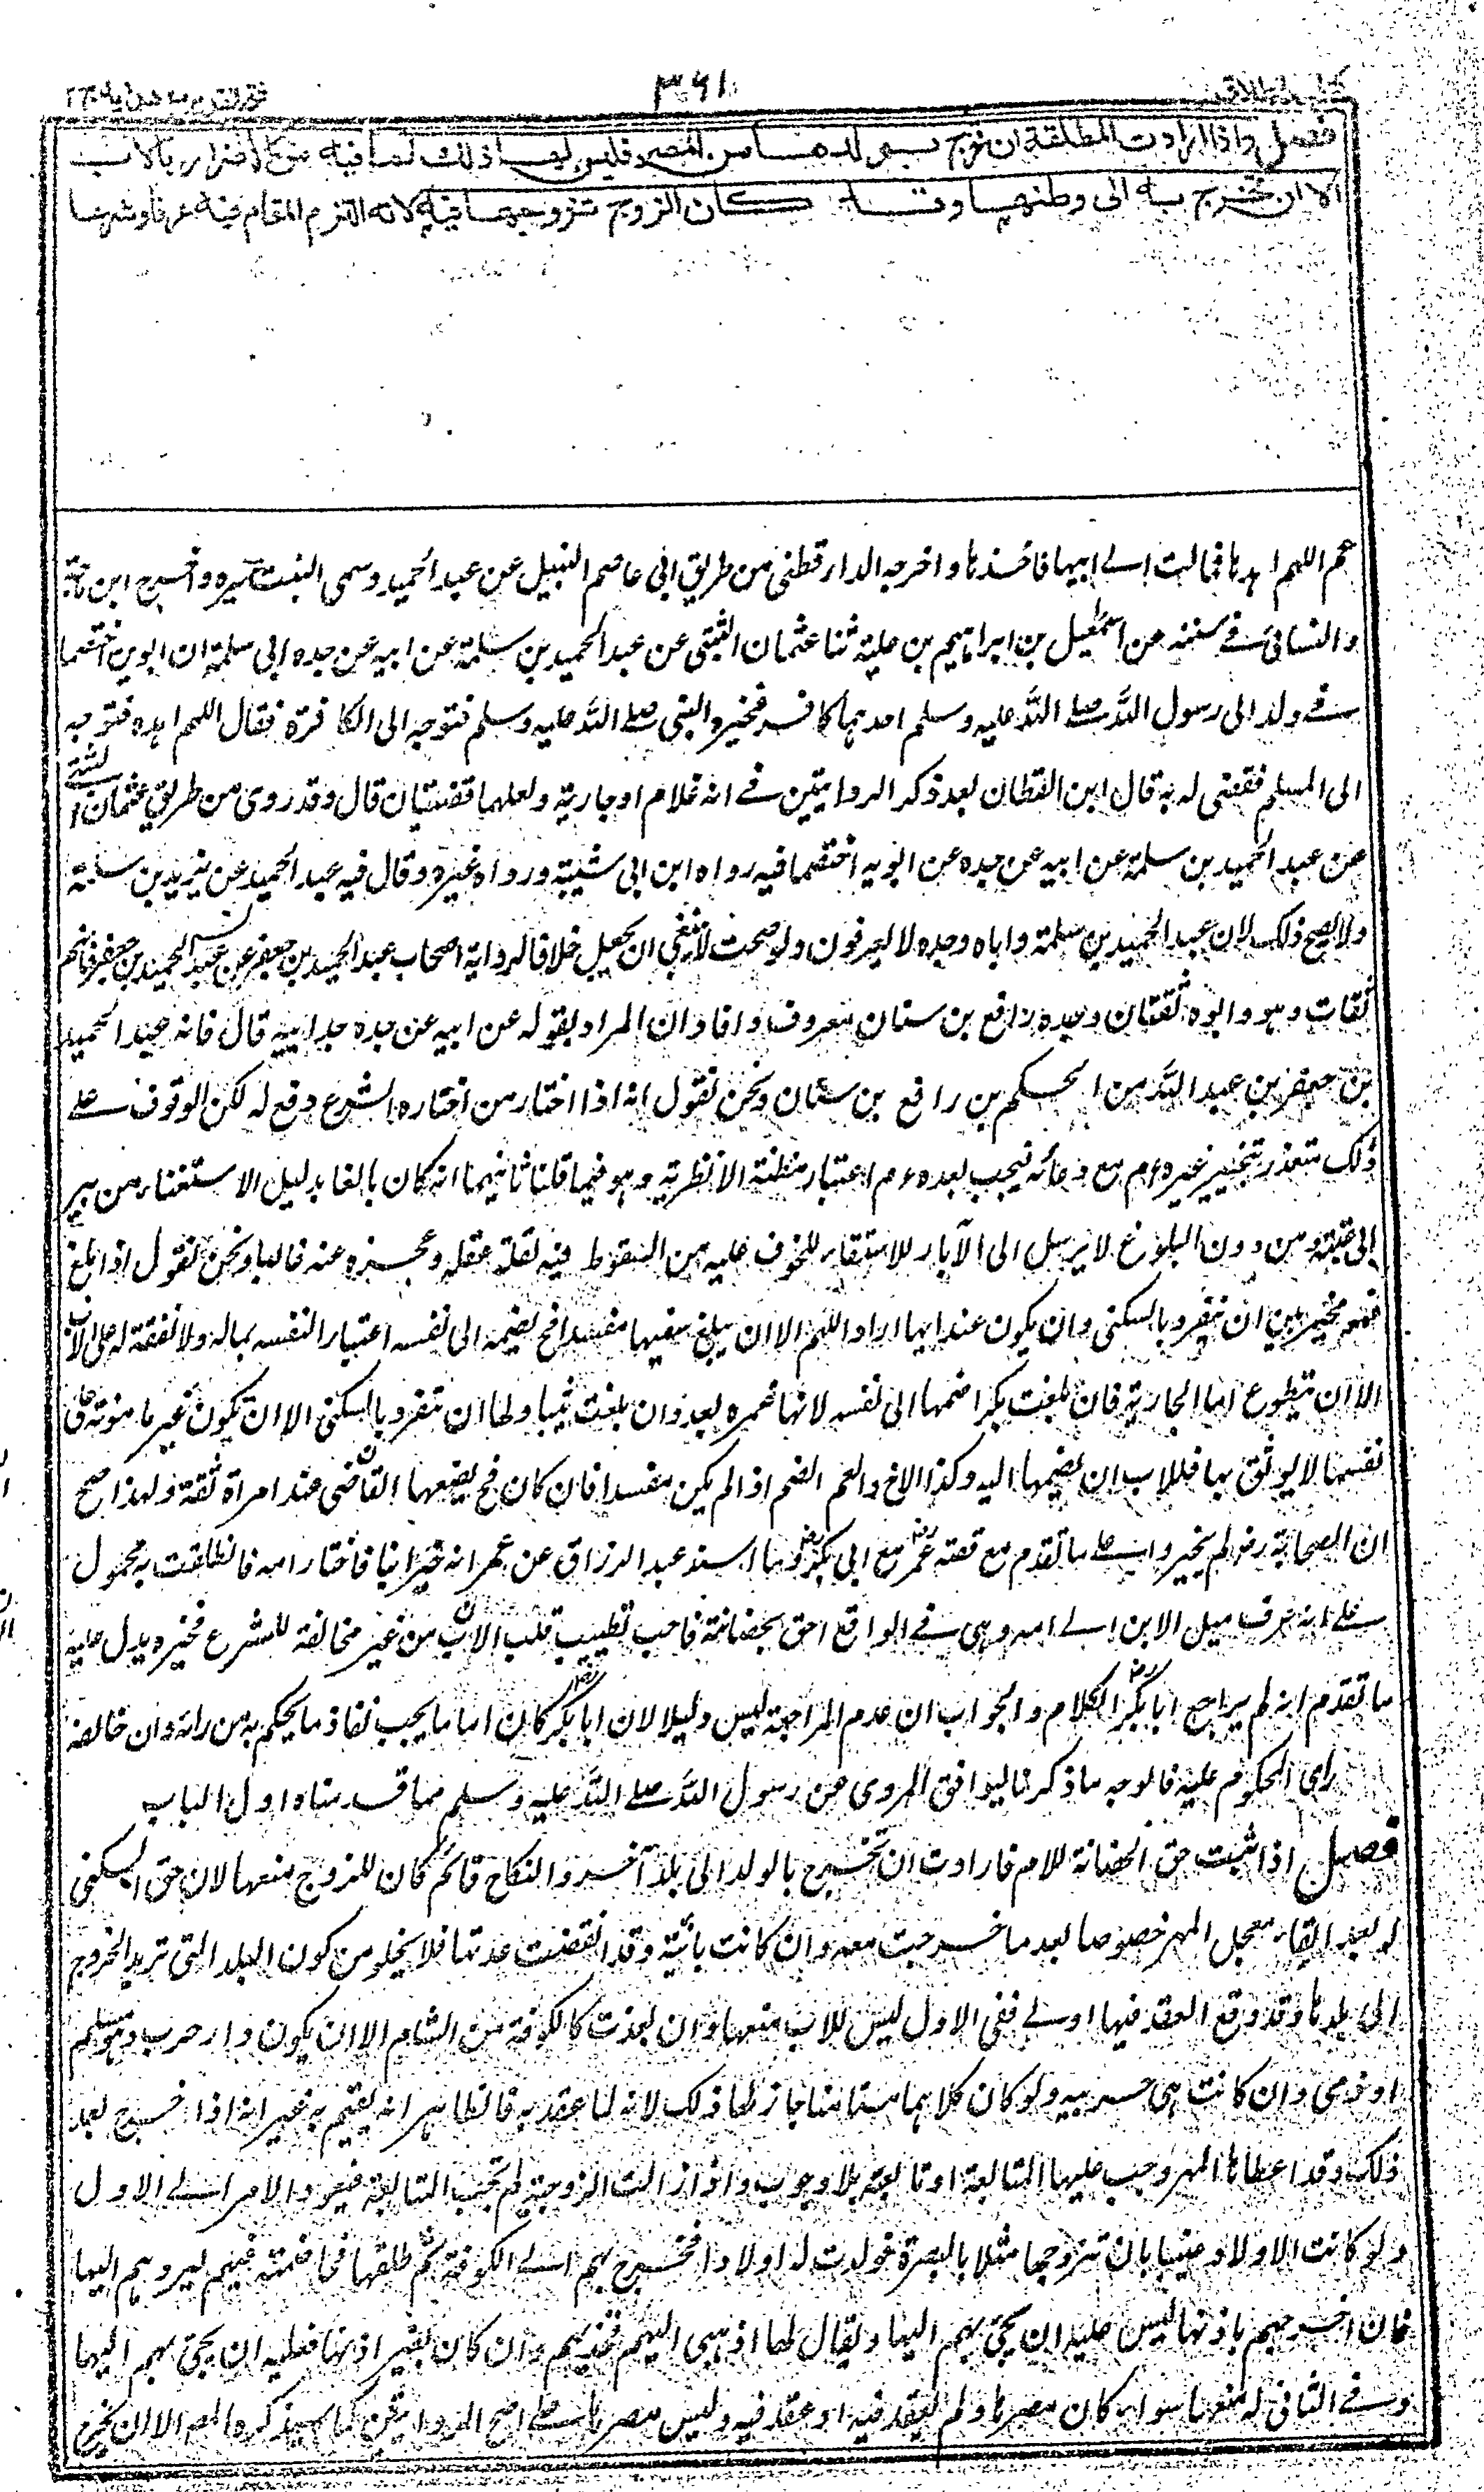 كتاب الطلاق
٣٦١
فتح القدير مع هدايه ج٢
فصل واذا ارادت المطلقة ان تخرج بولدها من المصر فليس لها ذلك لما فيه من الاضرار بالاب
الا ان تخرج به الى وطنها وقد كان الزوج تزوجها فيه لانه التزم المقام فيه عرفا وشرعا
عم اللهم اهدها فمالت الى ابيها فاخذها واخرجه الدارقطنى من طريق ابى عاصم النبيل عن عبد الحميد وسمى البنت عميرة واخرج ابن ماجة
والنسائى فى سننه عن اسمعيل بن ابراهيم بن علية ثنا عثمان البتى عن عبد الحميد بن سلمة عن ابيه عن جده ابى سلمة ان ابوين اختصما
فى ولد الى رسول الله صلى الله عليه وسلم احدهما كافر فخيره النبى صلى الله عليه وسلم فتوجه الى الكافرة فقال اللهم اهده فتوجه
الى المسلم فقضى له به قال ابن القطان بعد ذكر الروايتين فى انه غلام او جارية ولعلهما قضيتان قال وقد روى من طريق عثمان البتى
عن عبد الحميد بن سلمة عن ابيه عن جده عن ابويه اختصما فيه رواه ابن ابى شيبة ورواه غيره وقال فيه عبد الحميد عن يزيد بن سلمة
ولا يصح ذلك لان عبد الحميد بن سلمة واباه وجده لا يعرفون ولو صحت لا ينبغى ان يجعل خلافا لرواية اصحاب عبد الحميد بن جعفر عن عبد الحميد بن جعفر فانهم
ثقات وهو وابوه ثقتان وجده رافع بن سنان معروف وافاد ان المراد بقوله عن ابيه عن جده جد ابيه قال فانه عبد الحميد
بن جعفر بن عبد الله من الحكم بن رافع بن سنان ونحن نقول انه اذا اختار من اختاره الشرع دفع له لكن الوقوف على
ذلك متعذر بتخيير غيره عم مع دعائه فيجب بعده عم اعتبار مظنة الانظرية وهو فيما قلنا ثانيهما انه كان بالغا بدليل الاستغناء من بير
ابى عنبة ومن دون البلوغ لا يرسل الى الآبار للاستقاء للخوف عليه من السقوط فيه لقلة عقله وعجزه عنه غالبا ونحن نقول اذا بلغ
فهو مخير بين ان ينفرد بالسكنى وان يكون عند ايهما اراد اللهم الا ان يبلغ سفيها مفسدا فح يضمه الى نفسه اعتبارا لنفسه بماله ولا نفقة له على الاب
الا ان يتطوع اما الجارية فان بلغت بكرا ضمها الى نفسه لانها غمره بعد وان بلغت ثيبا ولها ان تنفرد بالسكنى الا ان تكون غير مامونة على
نفسها لا يوثق بها فللاب ان يضمها اليه وكذا الاخ والعم الضم اذا لم يكن مفسدا فان كان فح يضعها القاضى عند امراة ثقة ولهذا صح
ان الصحابة رض لم يخيروا على ما تقدم مع قصة عمر رض مع ابى بكر رض وما اسند عبد الرزاق عن عمر انه خير ابنا فاختار امه فانطلقت به محمول
على انه عرف ميل الابن الى امه وهى فى الواقع احق بحضانته فاحب تطييب قلب الاب من غير مخالفة للشرع فخيره يدل عليه
ما تقدم انه لم يراجع ابا بكر رض الكلام والجواب ان عدم المراجعة ليس دليلا لان ابا بكر رض كان اماما يجب نفاذ ما يحكم به من رائه وان خالفه
راى المحكوم عليه فالوجه ما ذكرنا ليوافق المروى عن رسول الله صلى الله عليه وسلم مما قدمناه اول الباب
فصل اذا ثبت حق الحضانة للام فارادت ان تخرج بالولد الى بلد آخر والنكاح قائم كان للزوج منعها لان حق السكنى
له بعد ايفاء معجل المهر خصوصا بعد ما خرجت معه وان كانت بائنة وقد انقضت عدتها فلا يخلو من كون البلد التى تريد الخروج
الى بلدها وقد وقع العقد فيها اولى ففى الاول ليس للاب منعها وان بعدت كالكوفة من الشام الا ان يكون دار حرب وهو مسلم
او ذمى وان كانت هى حربيه ولو كان كلاهما مستامنا جاز لها ذلك لانه لما عقد به فالظاهر انه يقيم به غير انه اذا خرج بعد
ذلك وقد اعطاها المهر وجب عليها المتابعة او تابعته بلا وجوب واذا زالت الزوجية لم تجب المتابعة فيعود الامر الى الاول
ولو كانت الاولاد عينيا بان تزوجها مثلا بالبصرة فولدت له اولادا فخرج بهم الى الكوفة ثم طلقها فخاصمته فيهم ليردهم اليها
فان اخرجهم باذنها ليس عليه ان يجئ بهم اليها ويقال لها اذهبى اليهم فخذيهم وان كان بغير اذنها فعليه ان يجئ بهم اليها
وفى الثانى له منعها سواء كان مصرها ولم يعقد فيه او عقد فيه وليس مصرها على اصح الروايتين كما سيذكره المص الا ان يخرج